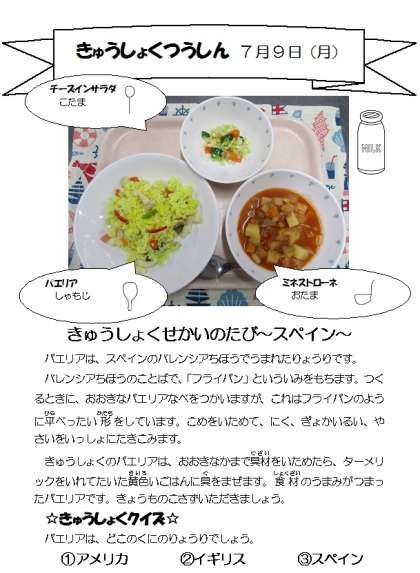 きゅうしょくつうしん ７月９日（月）
チーズインサラダ
こたま
MILK
パエリア
しゃもじ
ミネストローネ
おたま
きゅうしょくせかいのたび～スペイン～
パエリアは、スペインのバレンシアちほうでうまれたりょうりです。
バレンシアちほうのことばで、「フライパン」といういみをもちます。つく
るときに、おおきなパエリアなべをつかいますが、これはフライパンのよう
に平べったい形をしています。こめをいためて、にく、ぎょかいるい、や
さいをいっしょにたきこみます。
きゅうしょくのパエリアは、おおきなかまで具材をいためたら、ターメリ
ックをいれてたいた黄色いごはんに具をまぜます。食材のうまみがつまっ
たパエリアです。きょうものこさずいただきましょう。
☆きゅうしょくクイズ☆
パエリアは、どこのくにのりょうりでしょう。
①アメリカ ②イギリス ③スペイン